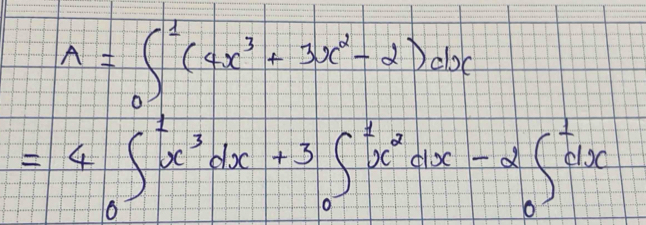 A = ∫₀¹ (4x³ + 3x² - 2) dx
= 4 ∫₀¹ x³ dx + 3 ∫₀¹ x² dx - 2 ∫₀¹ dx